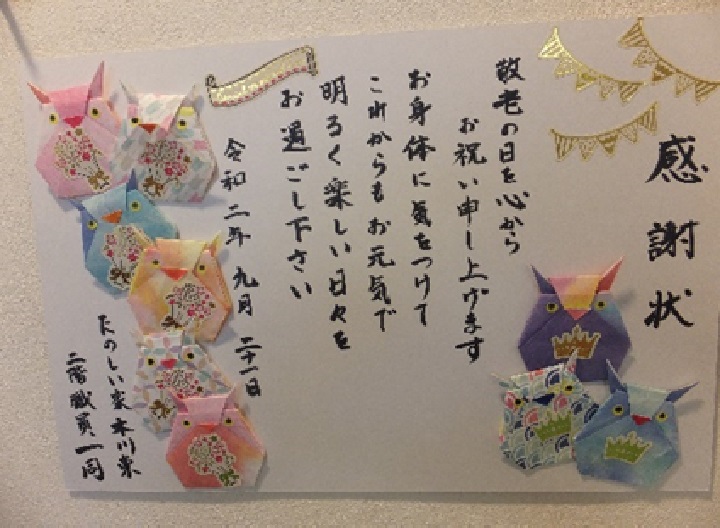 感謝状
敬老の日を心から
お祝い申し上げます
お身体に気をつけて
これからもお元気で
明るく楽しい日々を
お過ごし下さい
令和二年 九月 二十一日
たのしい家木川東
二階職員一同